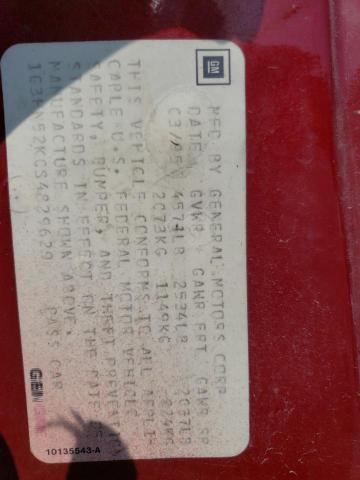 GM
MFD BY GENERAL MOTORS CORP
DATE GVWR GAWR FRT GAWR RR
C3/95 4571LB 2534LB 2037LB
2073KG 1149KG 924KG
THIS VEHICLE CONFORMS TO ALL APPLI-
CABLE U.S. FEDERAL MOTOR VEHICLE
SAFETY, BUMPER, AND THEFT PREVENTION
STANDARDS IN EFFECT ON THE DATE OF
MANUFACTURE SHOWN ABOVE.
PASS CAR
10135543-A